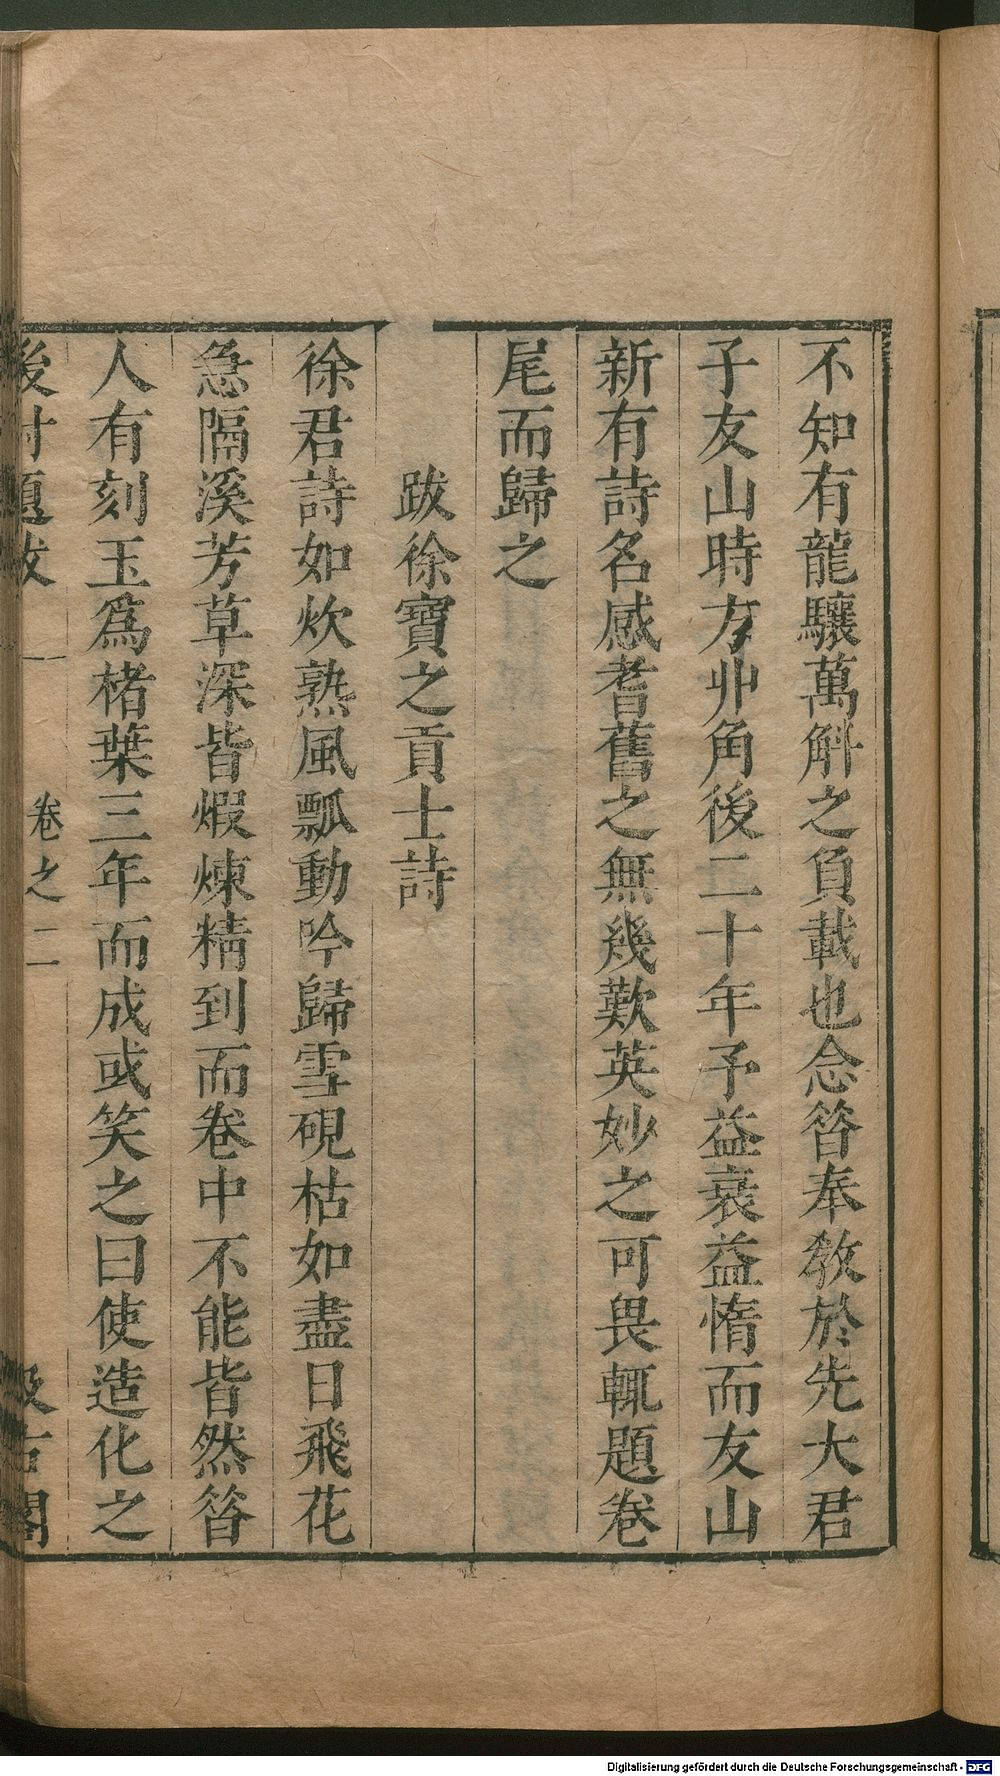 不知有龍驤萬斛之負載也念昝奉敎於先大君
子友山時方丱角後二十年予益衰益惰而友山
新有詩名感耆舊之無幾歎英妙之可畏輒題卷
尾而歸之
跋徐寶之貢士詩
徐君詩如炊熟風瓢動吟歸雪硯枯如盡日飛花
急隔溪芳草深皆煆煉精到而卷中不能皆然昝
人有刻玉爲楮葉三年而成或笑之曰使造化之
後村題跋 卷之二 汲古閣
Digitalisierung gefördert durch die Deutsche Forschungsgemeinschaft - DFG